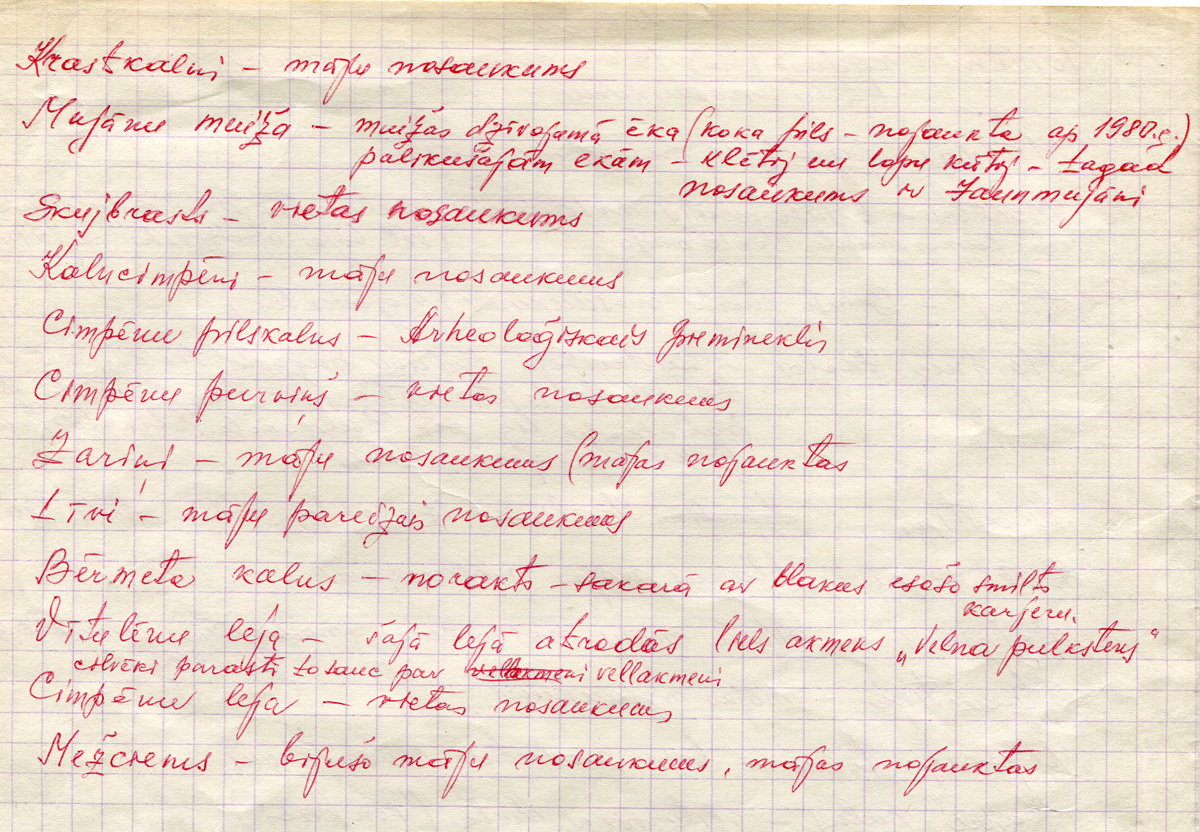 Krastkalni – māju nosaukums
Mujānu muiža – muižas dzīvojamā ēka (koka pils – nojaukta ap 1980.g.)
palikušajām ēkām – klētij un lopu kūtij – tagad
nosaukums ir Jaunmujāni
Skujbrasls – vietas nosaukums
Kalncimpēni – māju nosaukums
Cimpēnu pilskalns – Arheoloģiskais piemineklis
Cimpēnu purviņš – vietas nosaukums
Zariņi – māju nosaukums (mājas nojauktas
Līvi – māju pareizais nosaukums
Bērmeta kalns – norakts – sakarā ar blakus esošo smilts
karjeru.
Vītulēnu leja – šajā lejā atrodās liels akmens „Velna pulkstens"
cilvēki parasti to sauc par vellakmeni vellakmeni
Cimpēnu leja – vietas nosaukums
Mežciems – bijušo māju nosaukums, mājas nojauktas